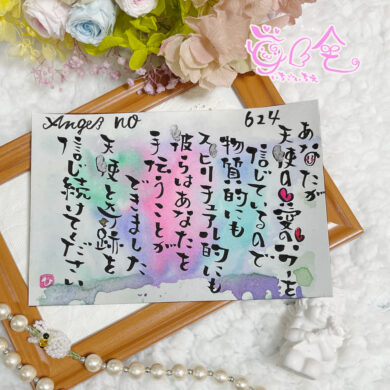 Angel no 624
あなたが
天使の愛のパワーを
信じているので
物質的にも
スピリチュアル的にも
彼らはあなたを
手伝うことが
できました
天使と奇跡を
信じ続けてください
ひ